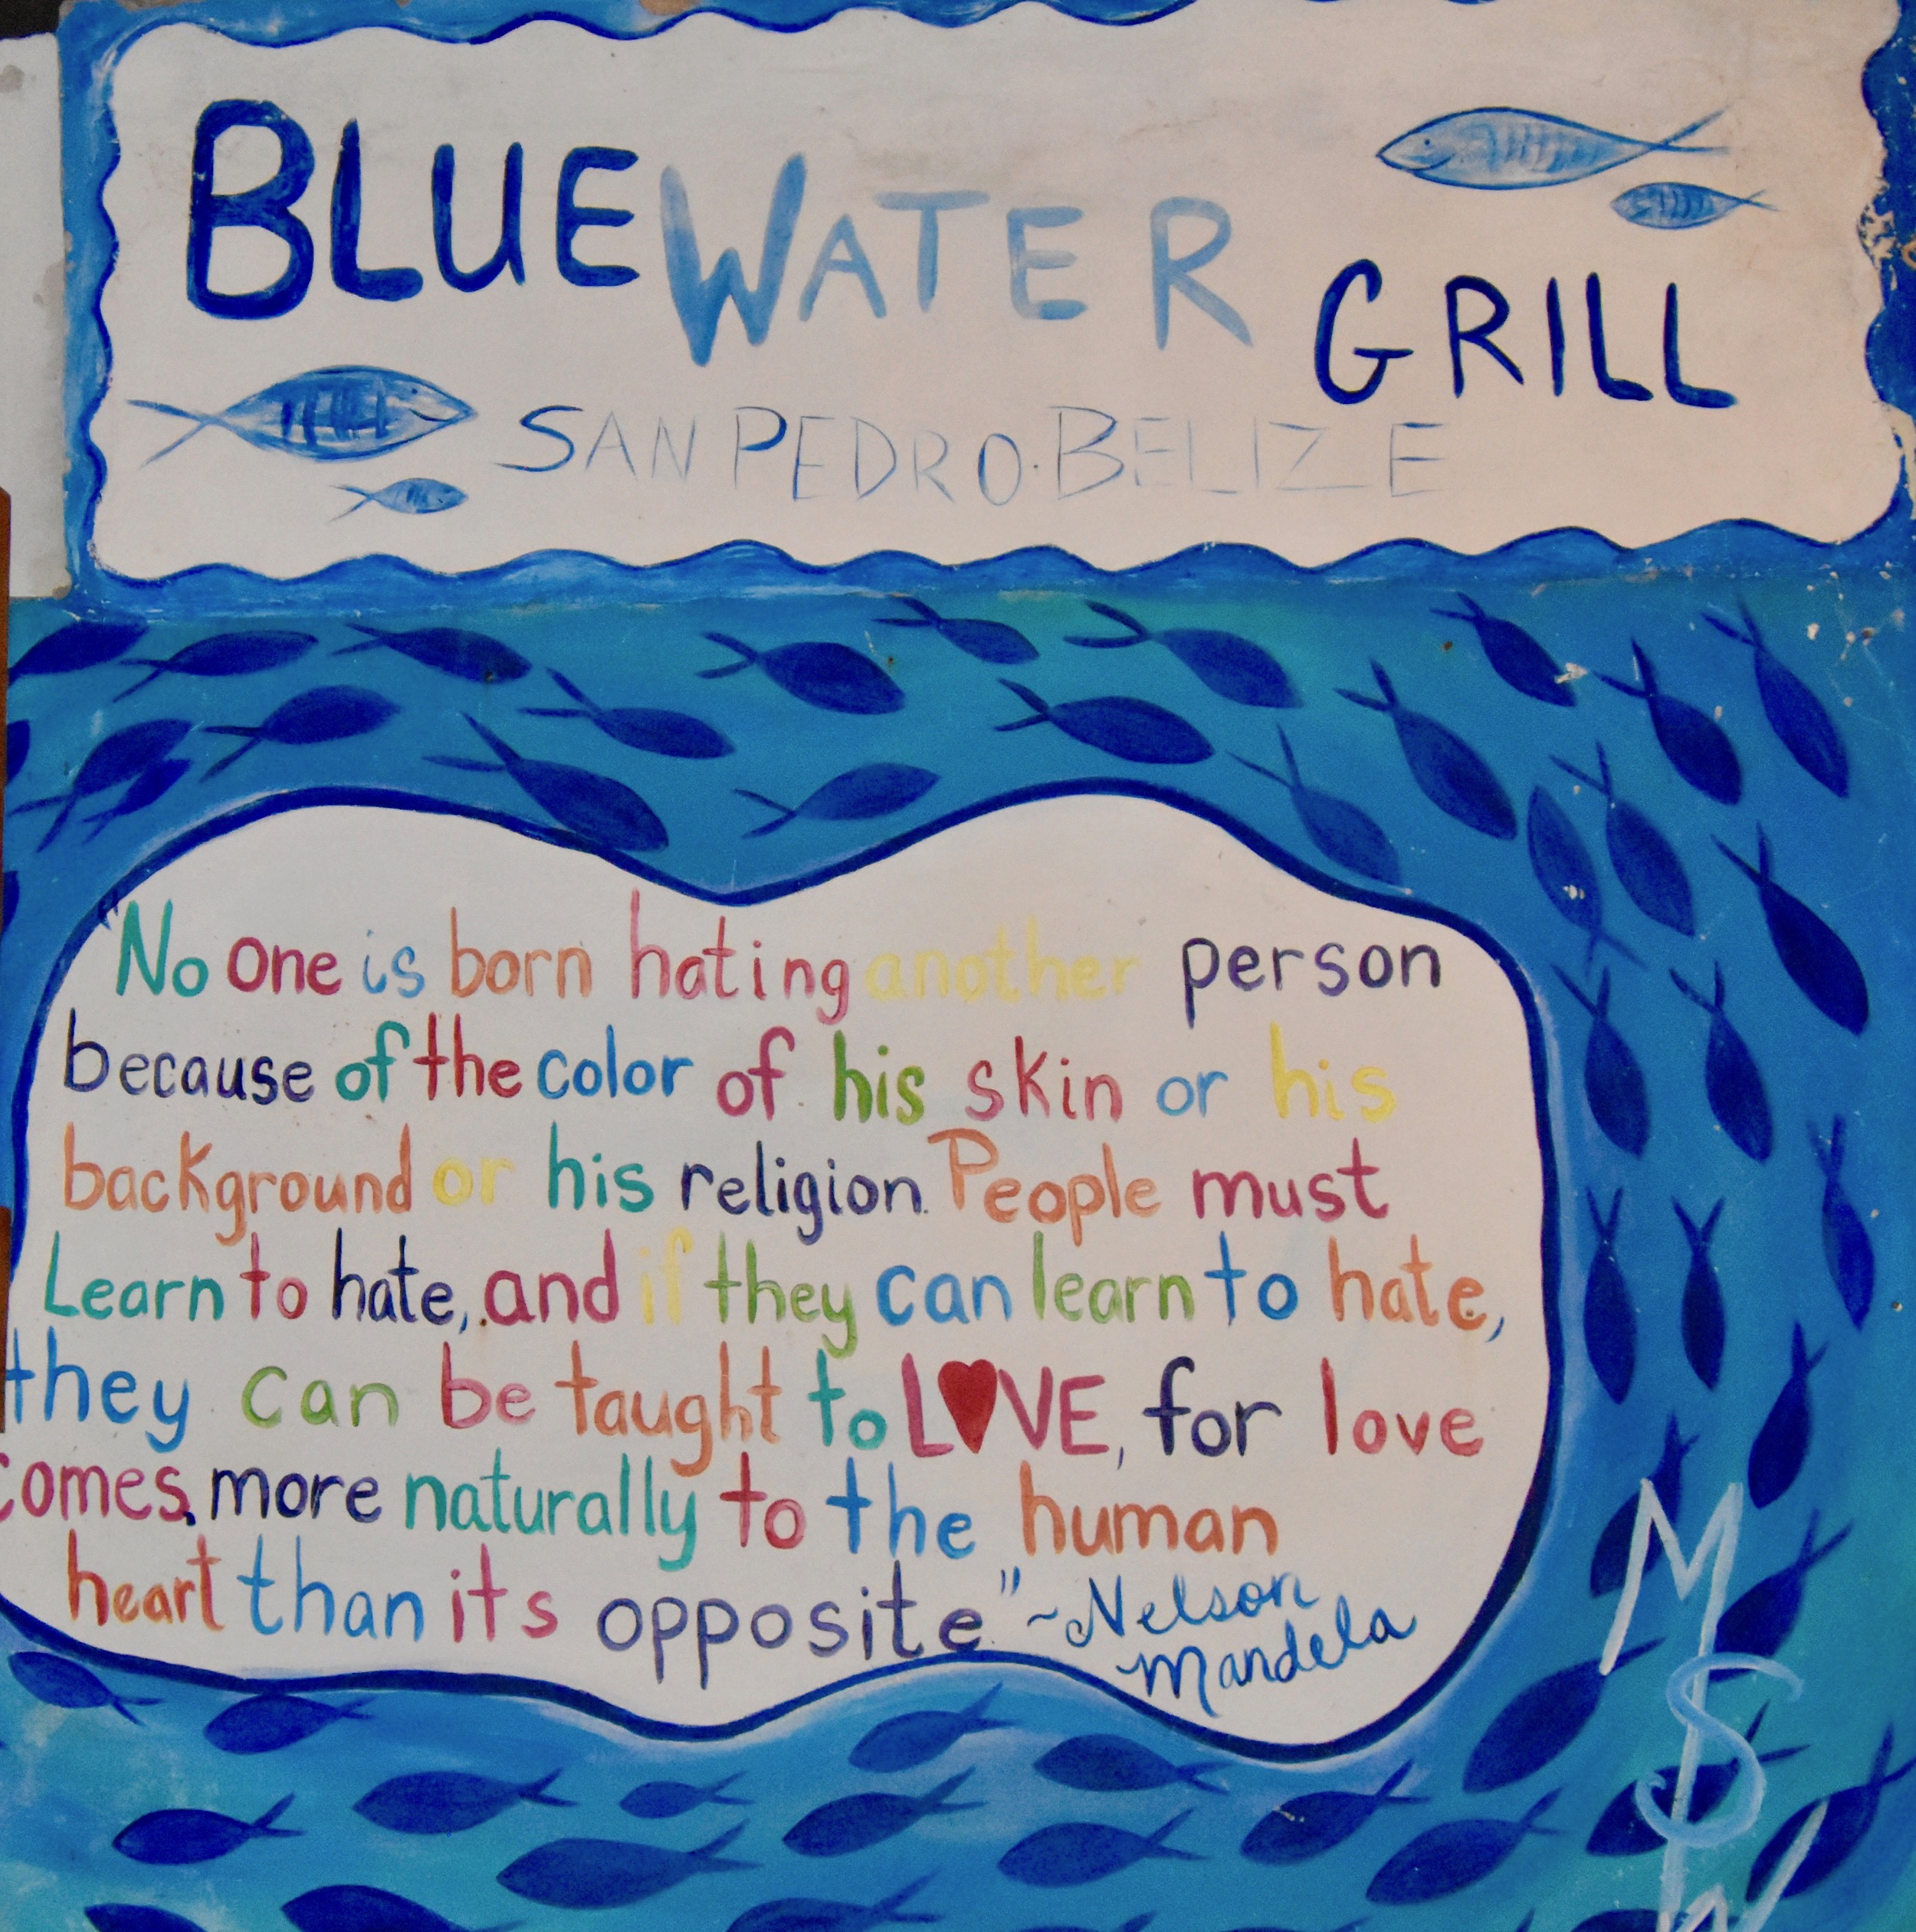 BLUEWATER GRILL
SAN PEDRO·BELIZE
"No one is born hating another person
because of the color of his skin or his
background or his religion. People must
Learn to hate, and if they can learn to hate,
they can be taught to L♥VE, for love
comes more naturally to the human
heart than its opposite" ~Nelson
Mandela
M
S
W